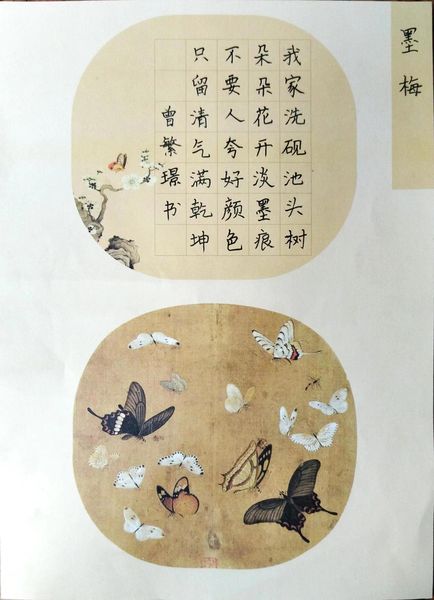 墨梅
我家洗砚池头树
朵朵花开淡墨痕
不要人夸好颜色
只留清气满乾坤
曾繁璟书